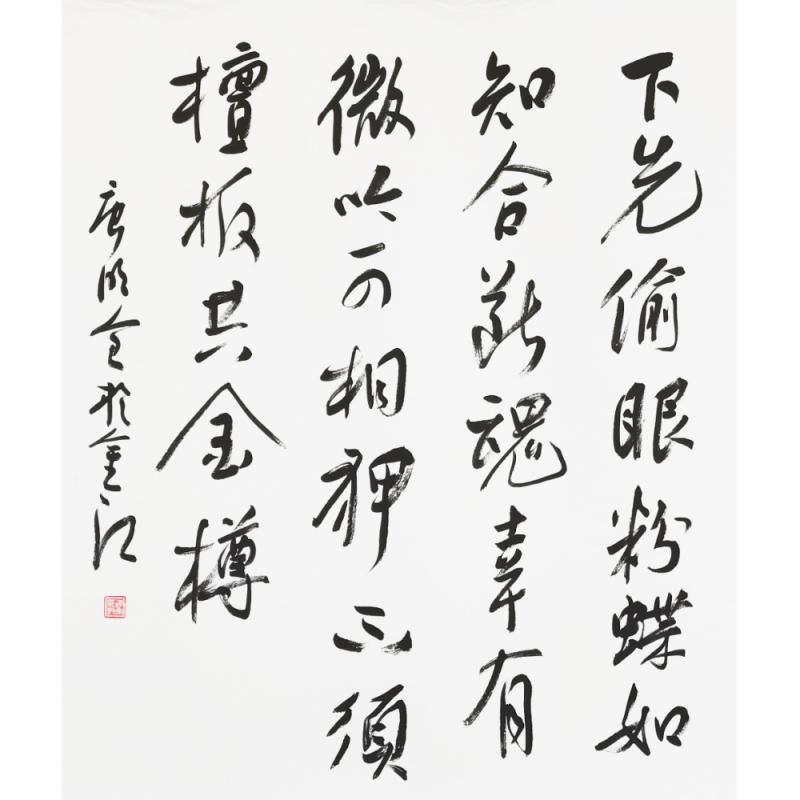 下先偷眼粉蝶如
知合断魂幸有
微吟可相狎不須
檀板共金樽
於江